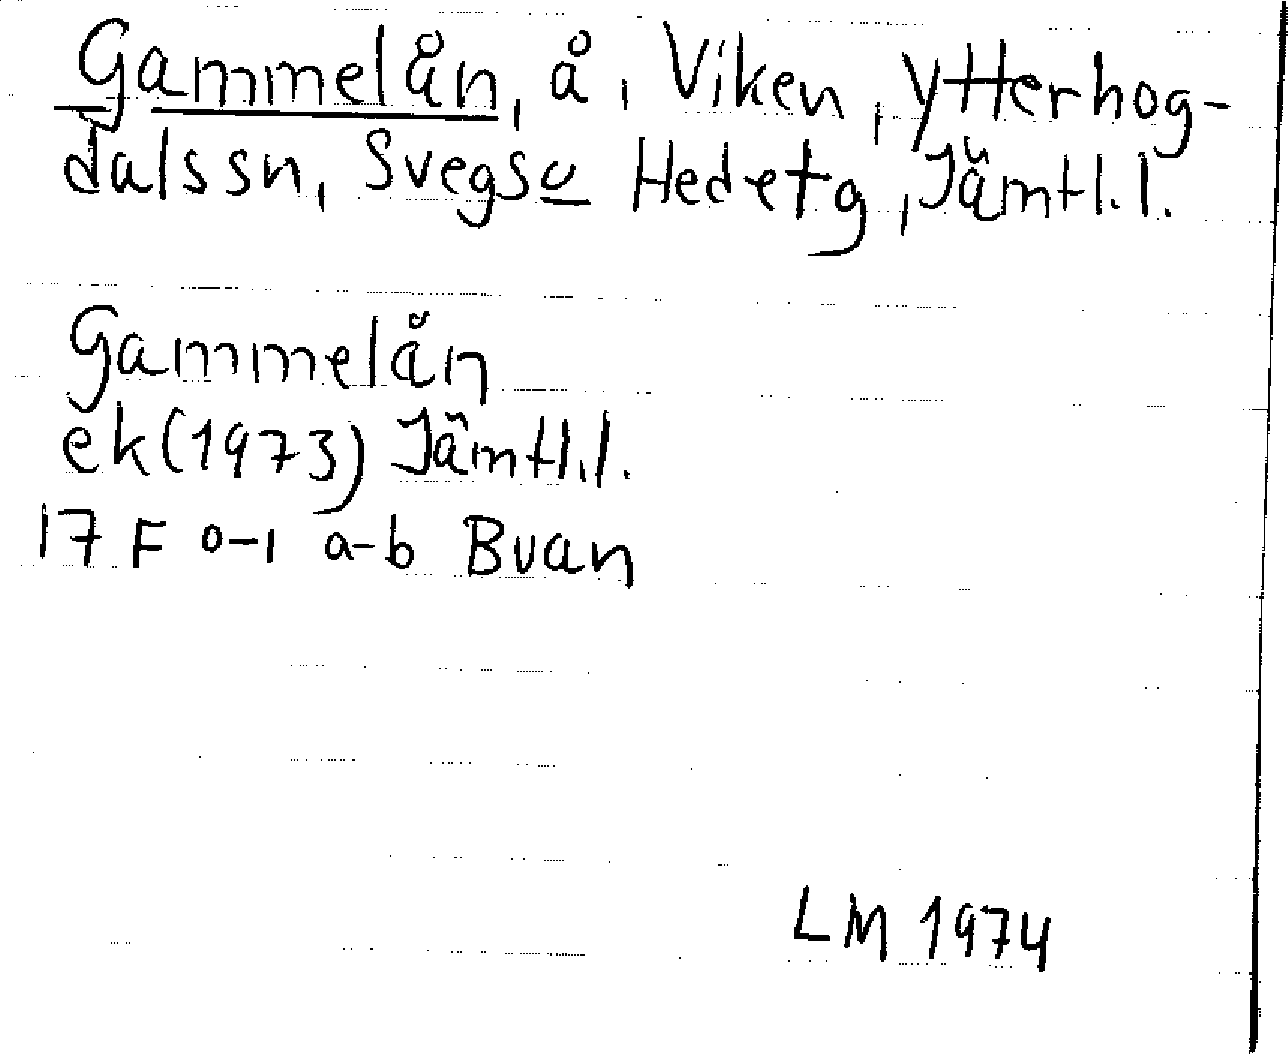 Gammelån, å, Viken, Ytterhog-
dalssn, Svegs o Hedetg, Jämtl.l.
Gammelån
ek (1973) Jämtl.l.
17 F 0-1 a-b Buan
LM 1974